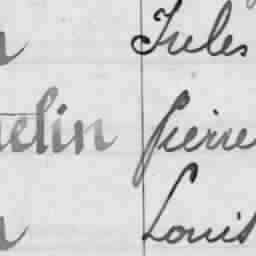 Jules
elin Pierre
Louis